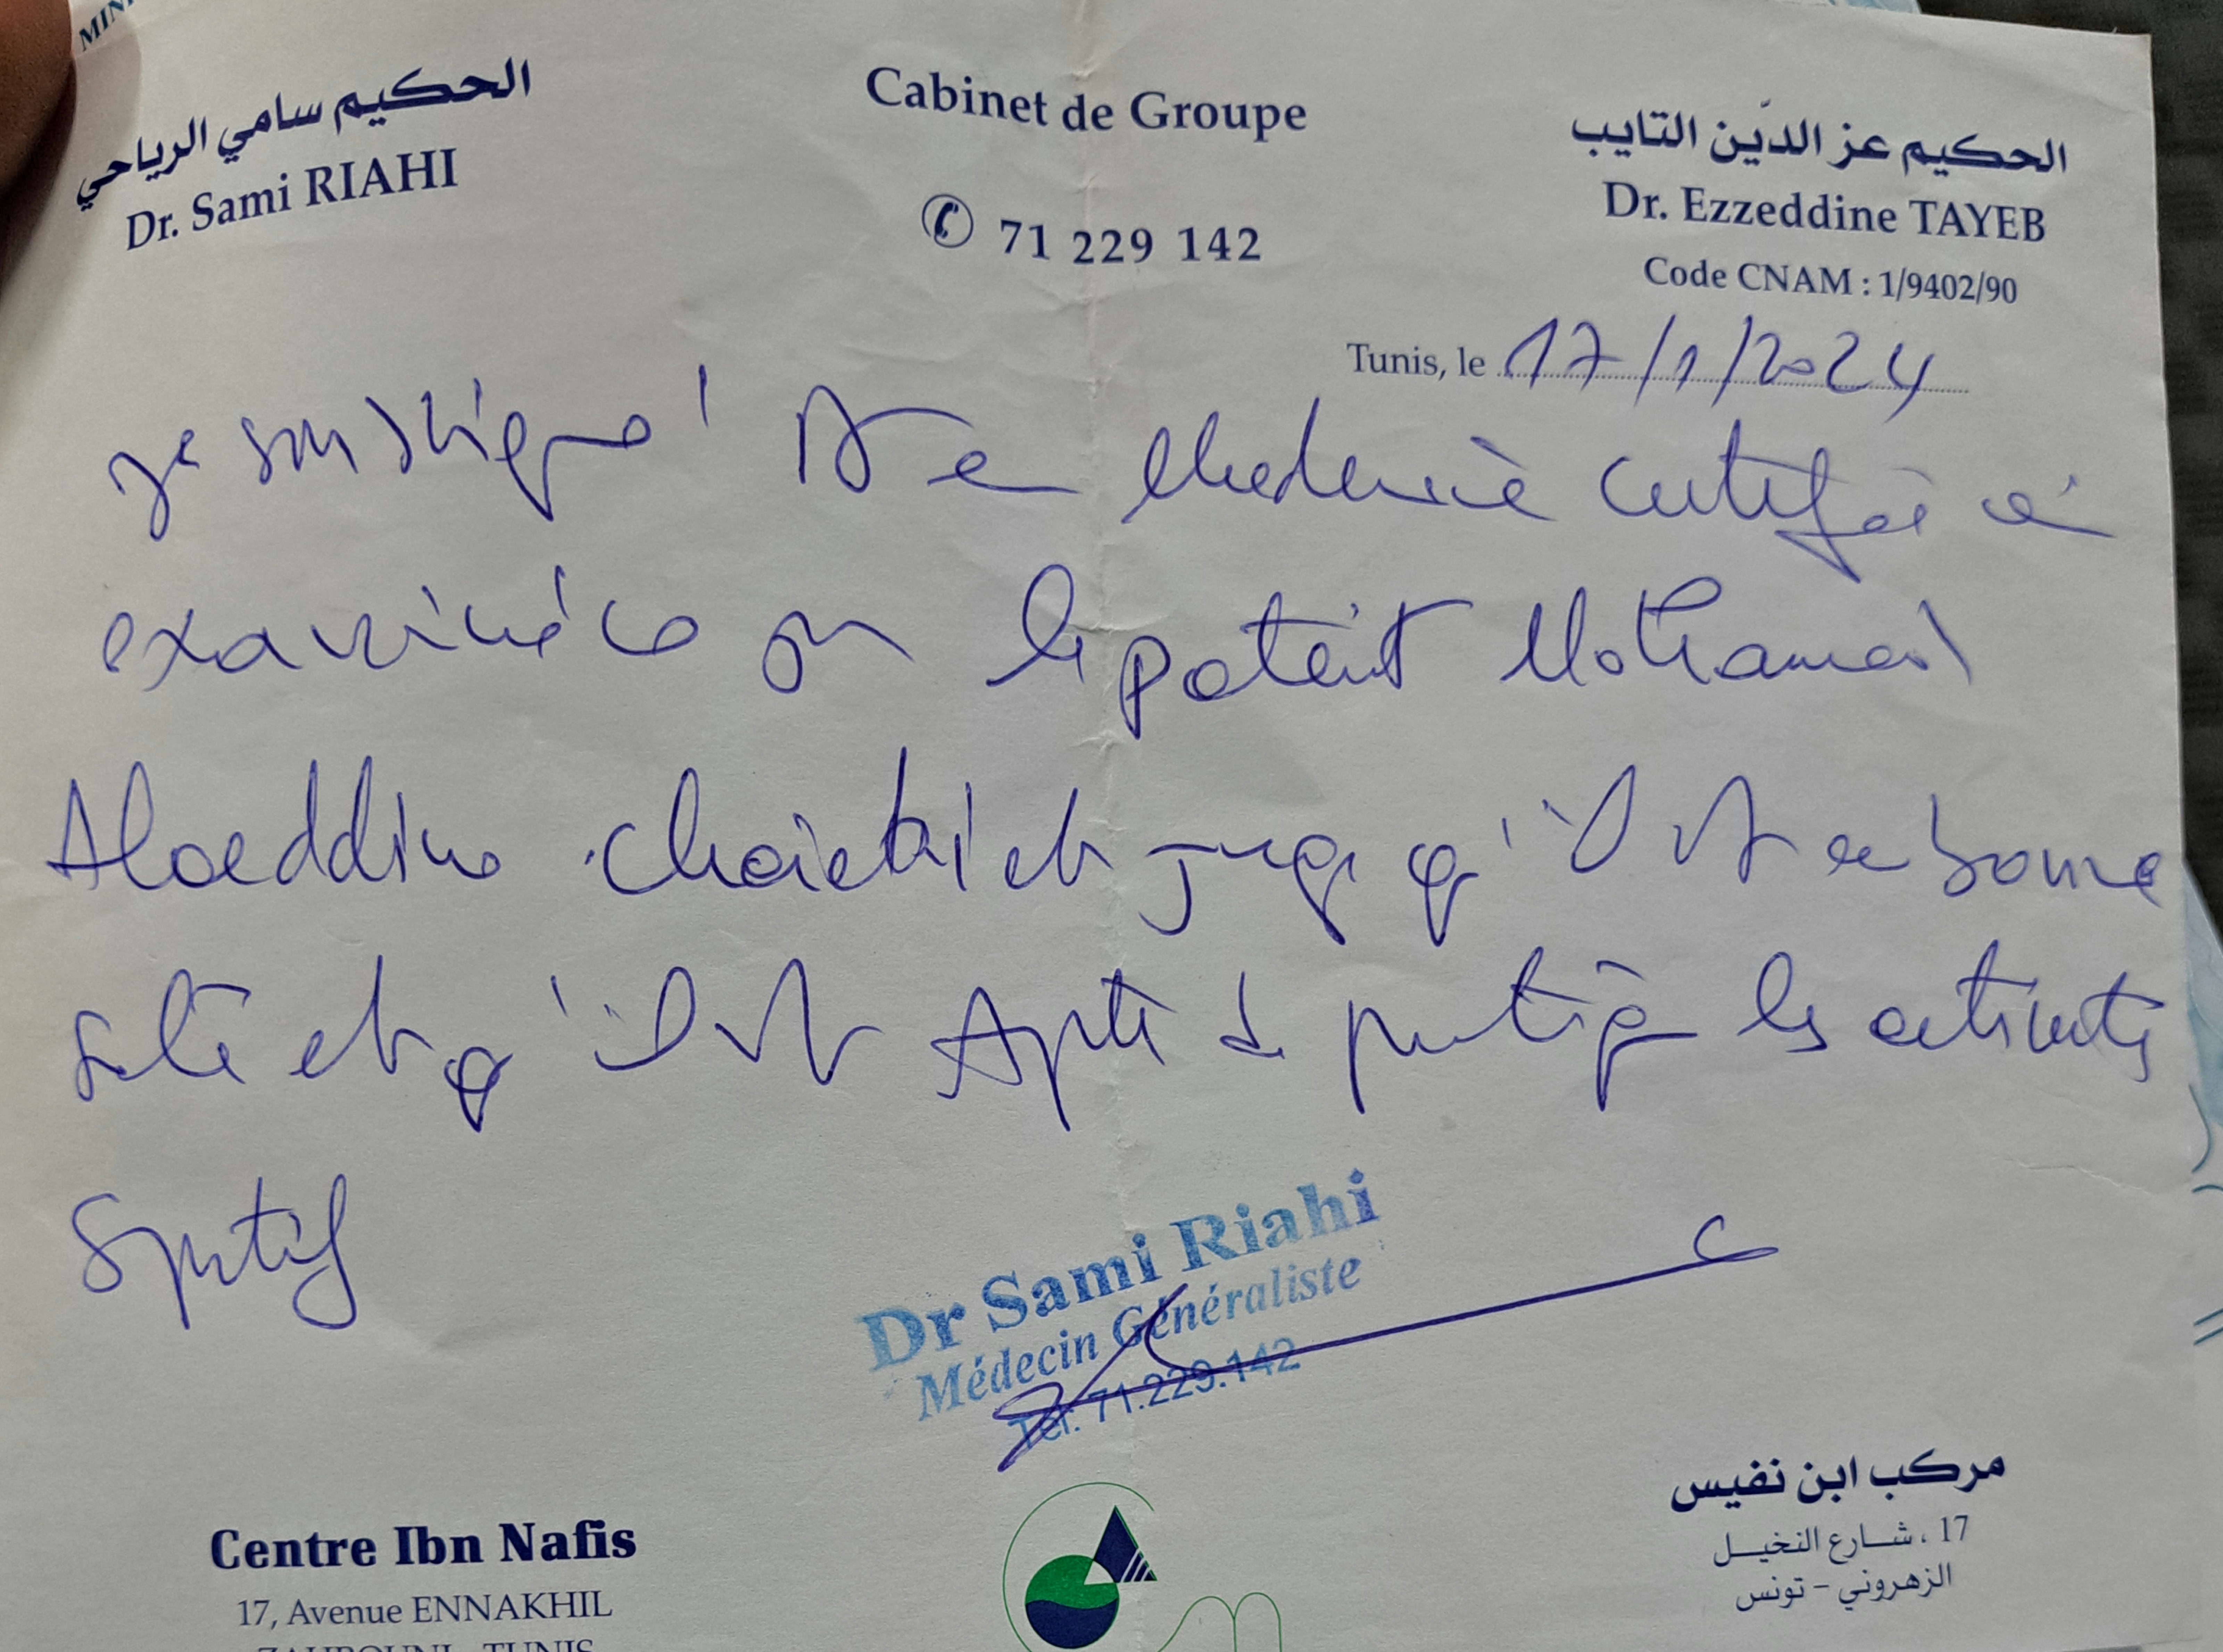 MIN
الحكيم سامي الرياحي
Dr. Sami RIAHI
Cabinet de Groupe
71 229 142
الحكيم عز الدّين التايب
Dr. Ezzeddine TAYEB
Code CNAM : 1/9402/90
Tunis, le 17/1/2024
Je soussigné Dr en Medecine certifie
examiné ce jour le patient Mohamed
Alaeddine et juge qu'il est en bonne
santé et qu'il est Apte de pratiquer les activités
Sportif
Dr Sami Riahi
Médecin Généraliste
Tel: 71.229.142
Centre Ibn Nafis
17, Avenue ENNAKHIL
ZAHROUNI - TUNIS
مركب ابن نفيس
17 ، شارع النخيل
الزهروني - تونس